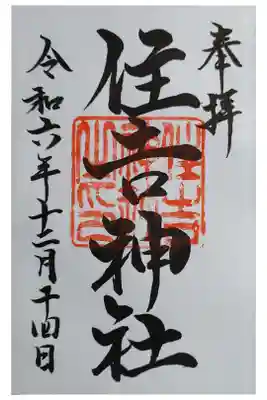 奉拝
住吉神社
令和六年十二月十四日